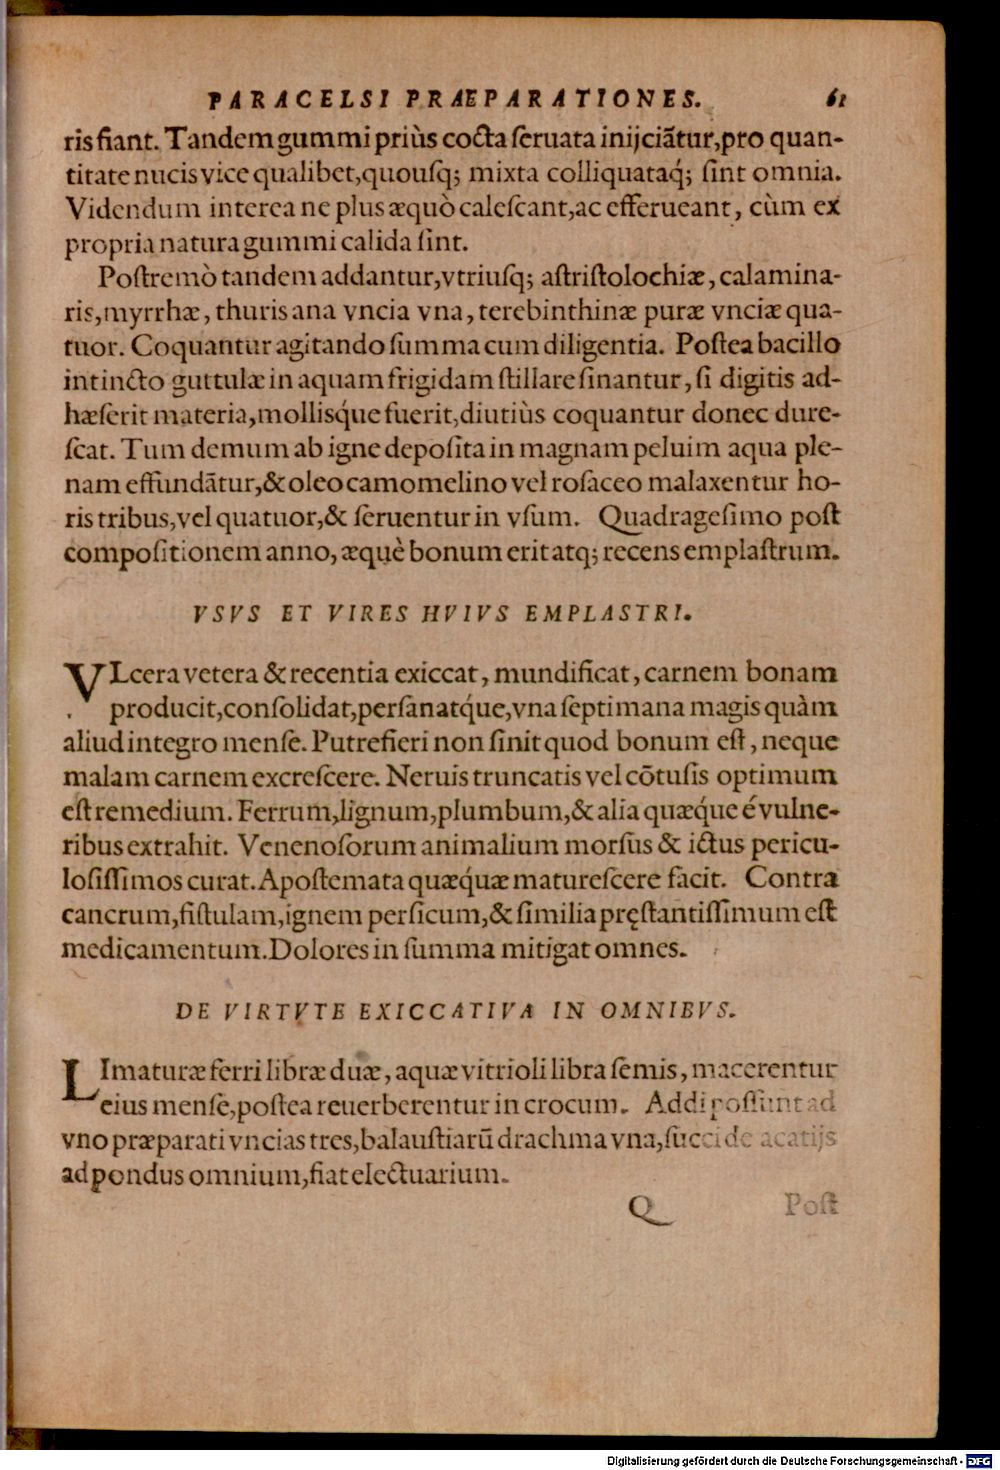 PARACELSI PRÆPARATIONES. 61
ris fiant. Tandem gummi priùs cocta ſeruata inijciãtur, pro quan-
titate nucis vice qualibet, quouſq; mixta colliquataq́; ſint omnia.
Videndum interea ne plus æquò caleſcant, ac efferueant, cùm ex
propria natura gummi calida ſint.
Poſtremò tandem addantur, vtriuſq; aſtriſtolochiæ, calamina-
ris, myrrhæ, thuris ana vncia vna, terebinthinæ puræ vnciæ qua-
tuor. Coquantur agitando ſumma cum diligentia. Poſtea bacillo
intincto guttulæ in aquam frigidam ſtillare ſinantur, ſi digitis ad-
hæſerit materia, molliſq́ue fuerit, diutiùs coquantur donec dure-
ſcat. Tum demum ab igne depoſita in magnam peluim aqua ple-
nam effundãtur, & oleo camomelino vel roſaceo malaxentur ho-
ris tribus, vel quatuor, & ſeruentur in vſum. Quadrageſimo poſt
compoſitionem anno, æquè bonum erit atq; recens emplaſtrum.
VSVS ET VIRES HVIVS EMPLASTRI.
VLcera vetera & recentia exiccat, mundificat, carnem bonam
producit, conſolidat, perſanatq́ue, vna ſeptimana magis quàm
aliud integro menſe. Putrefieri non ſinit quod bonum eſt, neque
malam carnem excreſcere. Neruis truncatis vel cõtuſis optimum
eſt remedium. Ferrum, lignum, plumbum, & alia quæq́ue é vulne-
ribus extrahit. Venenoſorum animalium morſus & ictus pericu-
loſiſſimos curat. Apoſtemata quæquæ matureſcere facit. Contra
cancrum, fiſtulam, ignem perſicum, & ſimilia pręſtantiſſimum eſt
medicamentum. Dolores in ſumma mitigat omnes.
DE VIRTVTE EXICCATIVA IN OMNIBVS.
LImaturæ ferri libræ duæ, aquæ vitrioli libra ſemis, macerentur
eius menſe, poſtea reuerberentur in crocum. Addi poſſunt ad
vno præparati vncias tres, balauſtiarũ drachma vna, ſucci de acatijs
ad pondus omnium, fiat electuarium.
Q Poſt
Digitalisierung gefördert durch die Deutsche Forschungsgemeinschaft - DFG